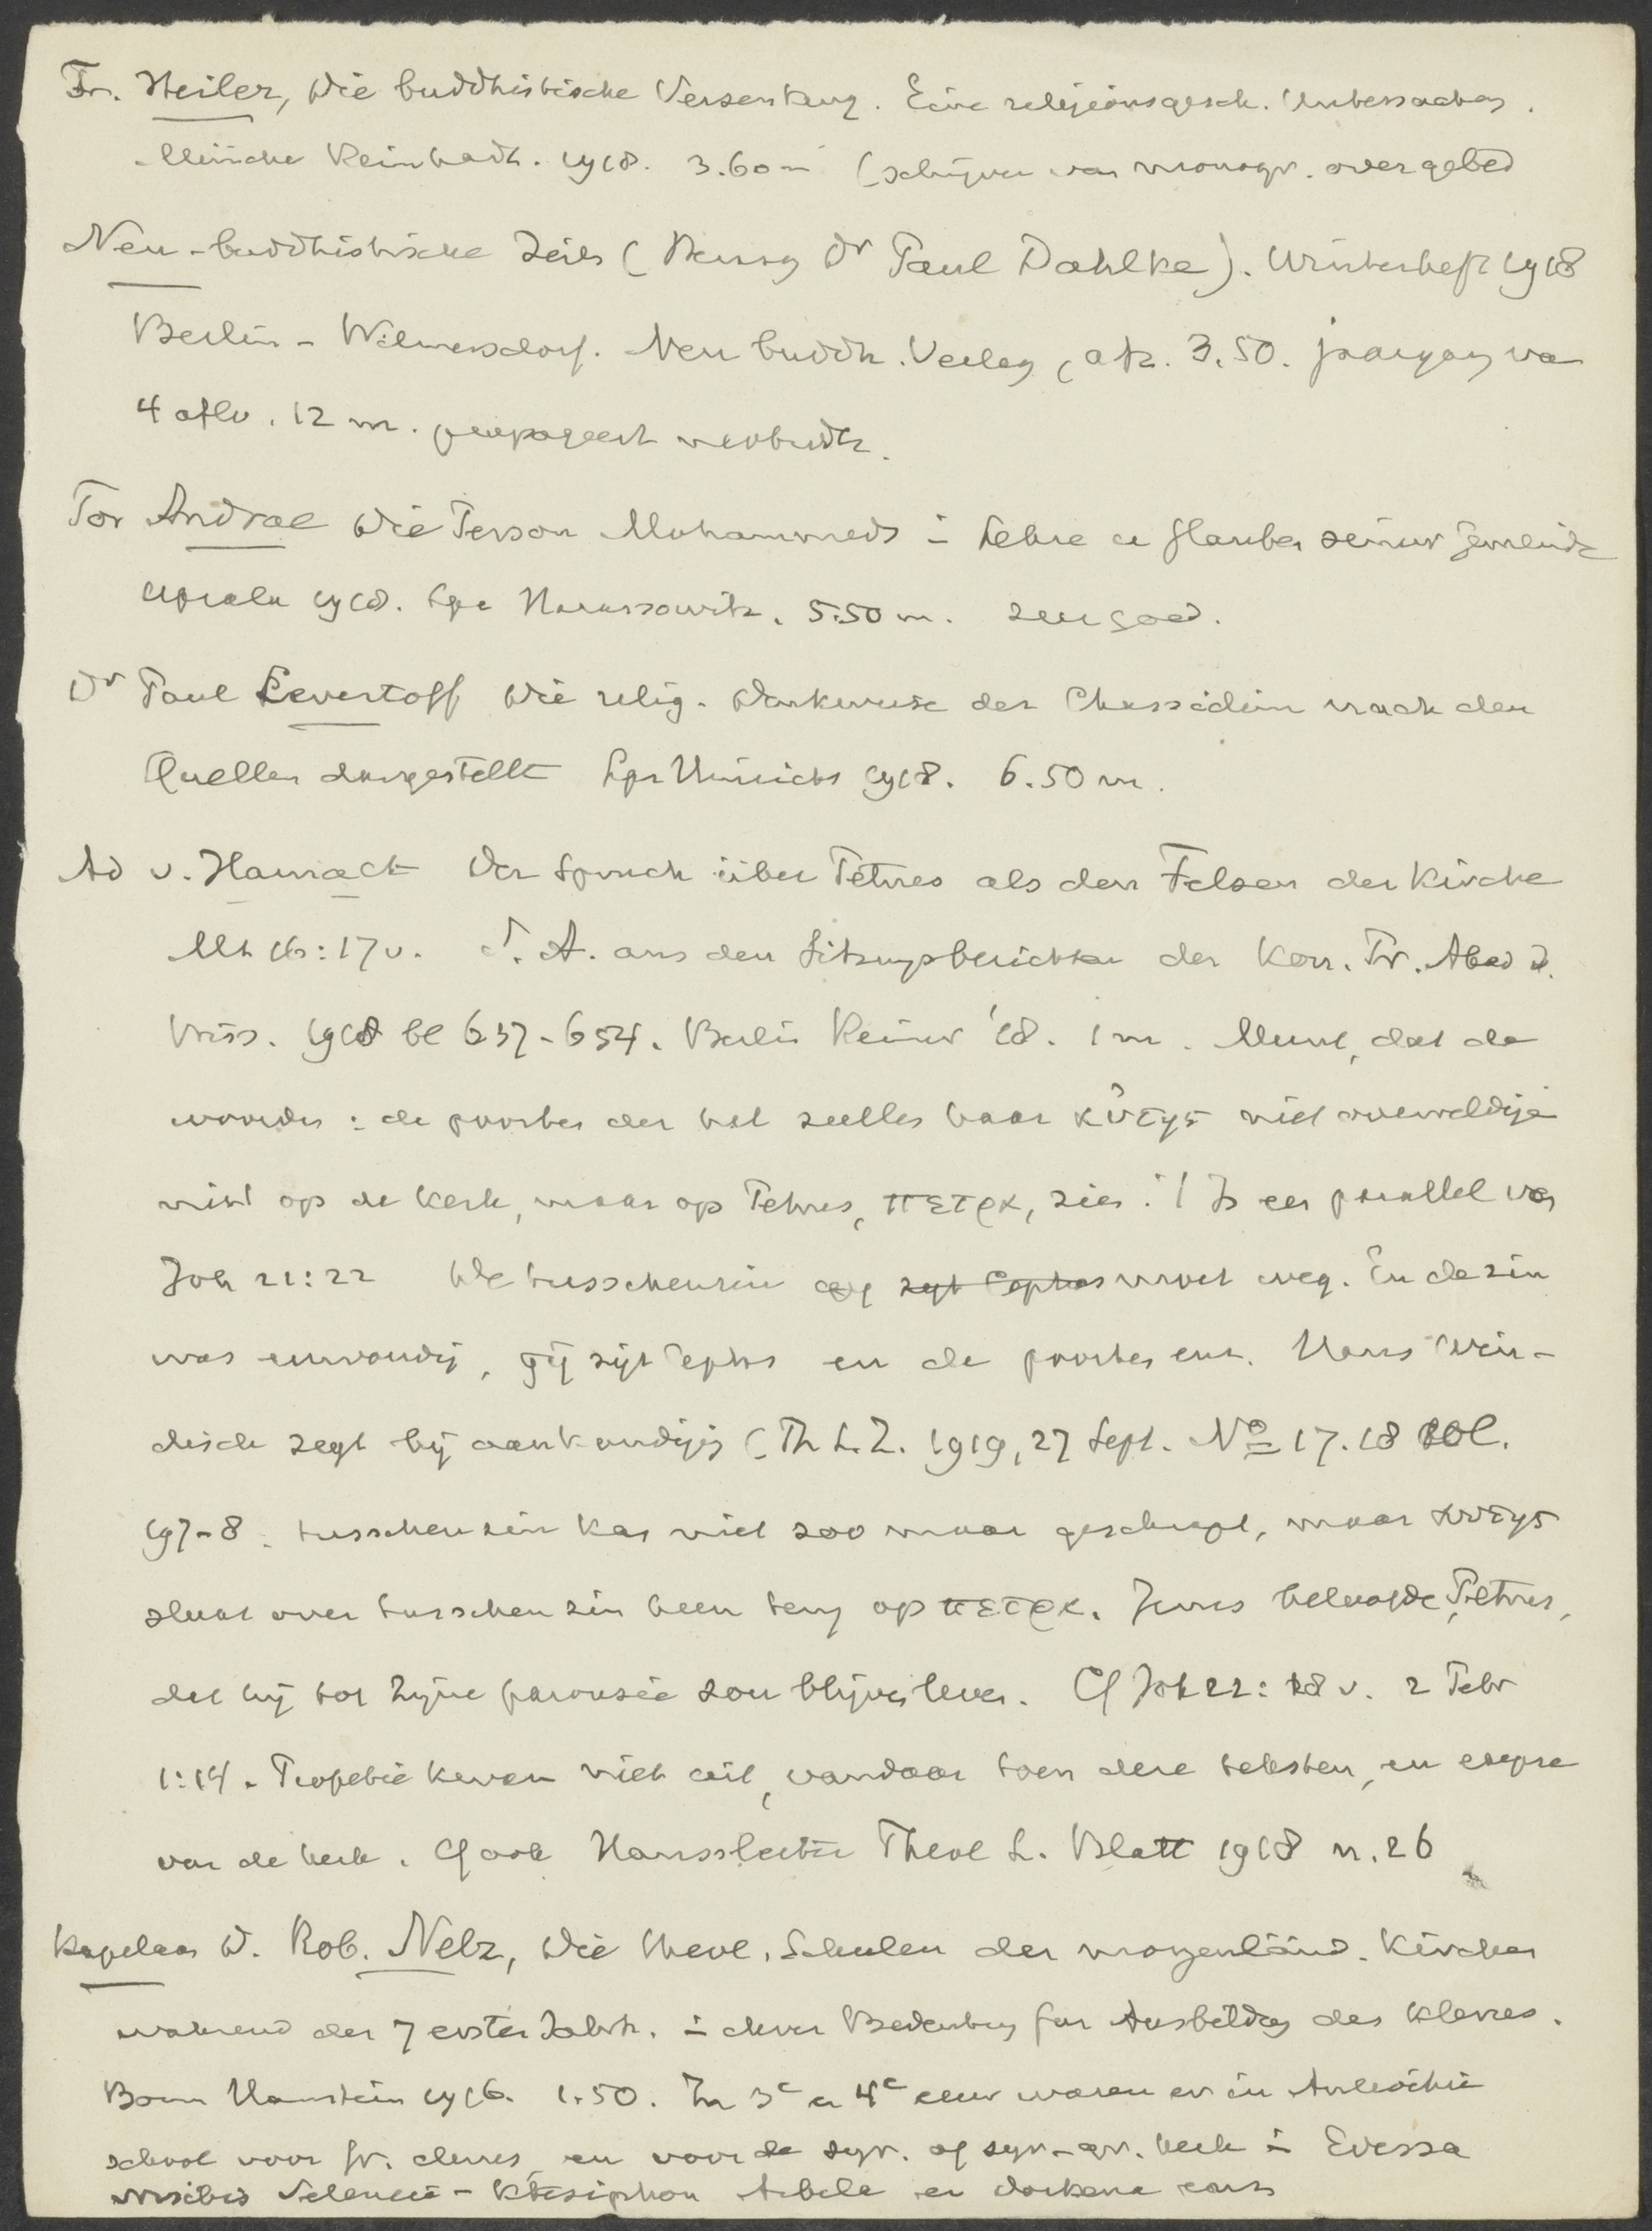 Fr. Heiler, Die buddhistische Versenkung. Eine religionsgesch. Untersuchung.
München Reinhardt. 1918. 3.60 m (schrijver van monogr. over gebed
Neu-buddhistische Zeits (Herausg Dr Paul Dahlke). Winterheft 1918
Berlin-Wilmersdorf. Neu buddh. Verlag, afz. 3.50. jaargang van
4 aflv. 12 m. propageert neobuddh.
Tor Andrae Die Person Muhammeds i Lehre u Glauben seiner Gemeinde
Upsala 1918. Lpz Harassowitz. 5.50 m. zeer goed.
Dr Paul Levertoff Die relig. Denkweise der Chassidim nach den
Quellen dargestellt Lpz Hinrichs 1918. 6.50 m.
Ad v. Harnack Der Spruch über Petrus als den Felsen der Kirche
Mt 16:17v. S.A. aus den Sitzungsberichten der Kon. Pr. Akad d.
Wiss. 1918 bl 637-654. Berlin Reimer '18. 1 m. Meent, dat de
woorden: de poorten der hel zullen haar αὐτης niet overweldigen
niet op de kerk, maar op Petrus, πετρα, zien! Is een parallel van
Joh 21:22 De tusschenzin moet weg. En de zin
was eenvoudig, gij zijt Cephas en de poorten enz. Hans Win-
disch zegt bij aankondiging (Th L.Z. 1919, 27 Sept. No 17.18 Kol.
197-8. tusschenzin kan niet zoo maar geschrapt, maar αυτης
slaat over tusschenzin heen terug op πετρα. Jezus beloofde Petrus,
dat hij tot Zijne parousie zou blijven leven. Cf Joh 21:18 v. 2 Petr
1:14. Profetie kwam niet uit, vandaar toen deze teksten, en exegese
van de kerk. Cf ook Haussleiter Theol L. Blatt 1918 n. 26
Kapelaan D. Rob. Nelz, Die theol. Schulen der morgenländ. Kirchen
während der 7 ersten Jahrh. i ihrer Bedeutung für Ausbildung des Klerus.
Bonn Hanstein 1916. 1.50. In 3e en 4e eeuw waren er in Antiochie
school voor gr. clerus, en voor de syr. of syr-gr. kerk i Edessa
Nisibis Seleucie-Ktesiphon Arbela en Dorkena enz